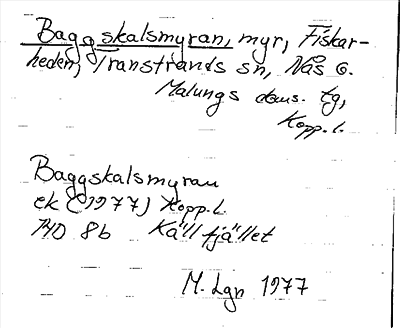 Baggskalsmyran, myr, Fiskar-
heden, Transtrands sn, Nås o.
Malungs doms. tg,
Kopp. l.
Baggskalsmyran
ek (1977) Kopp. L
14D 8b Källfjället
M. Lgn 1977